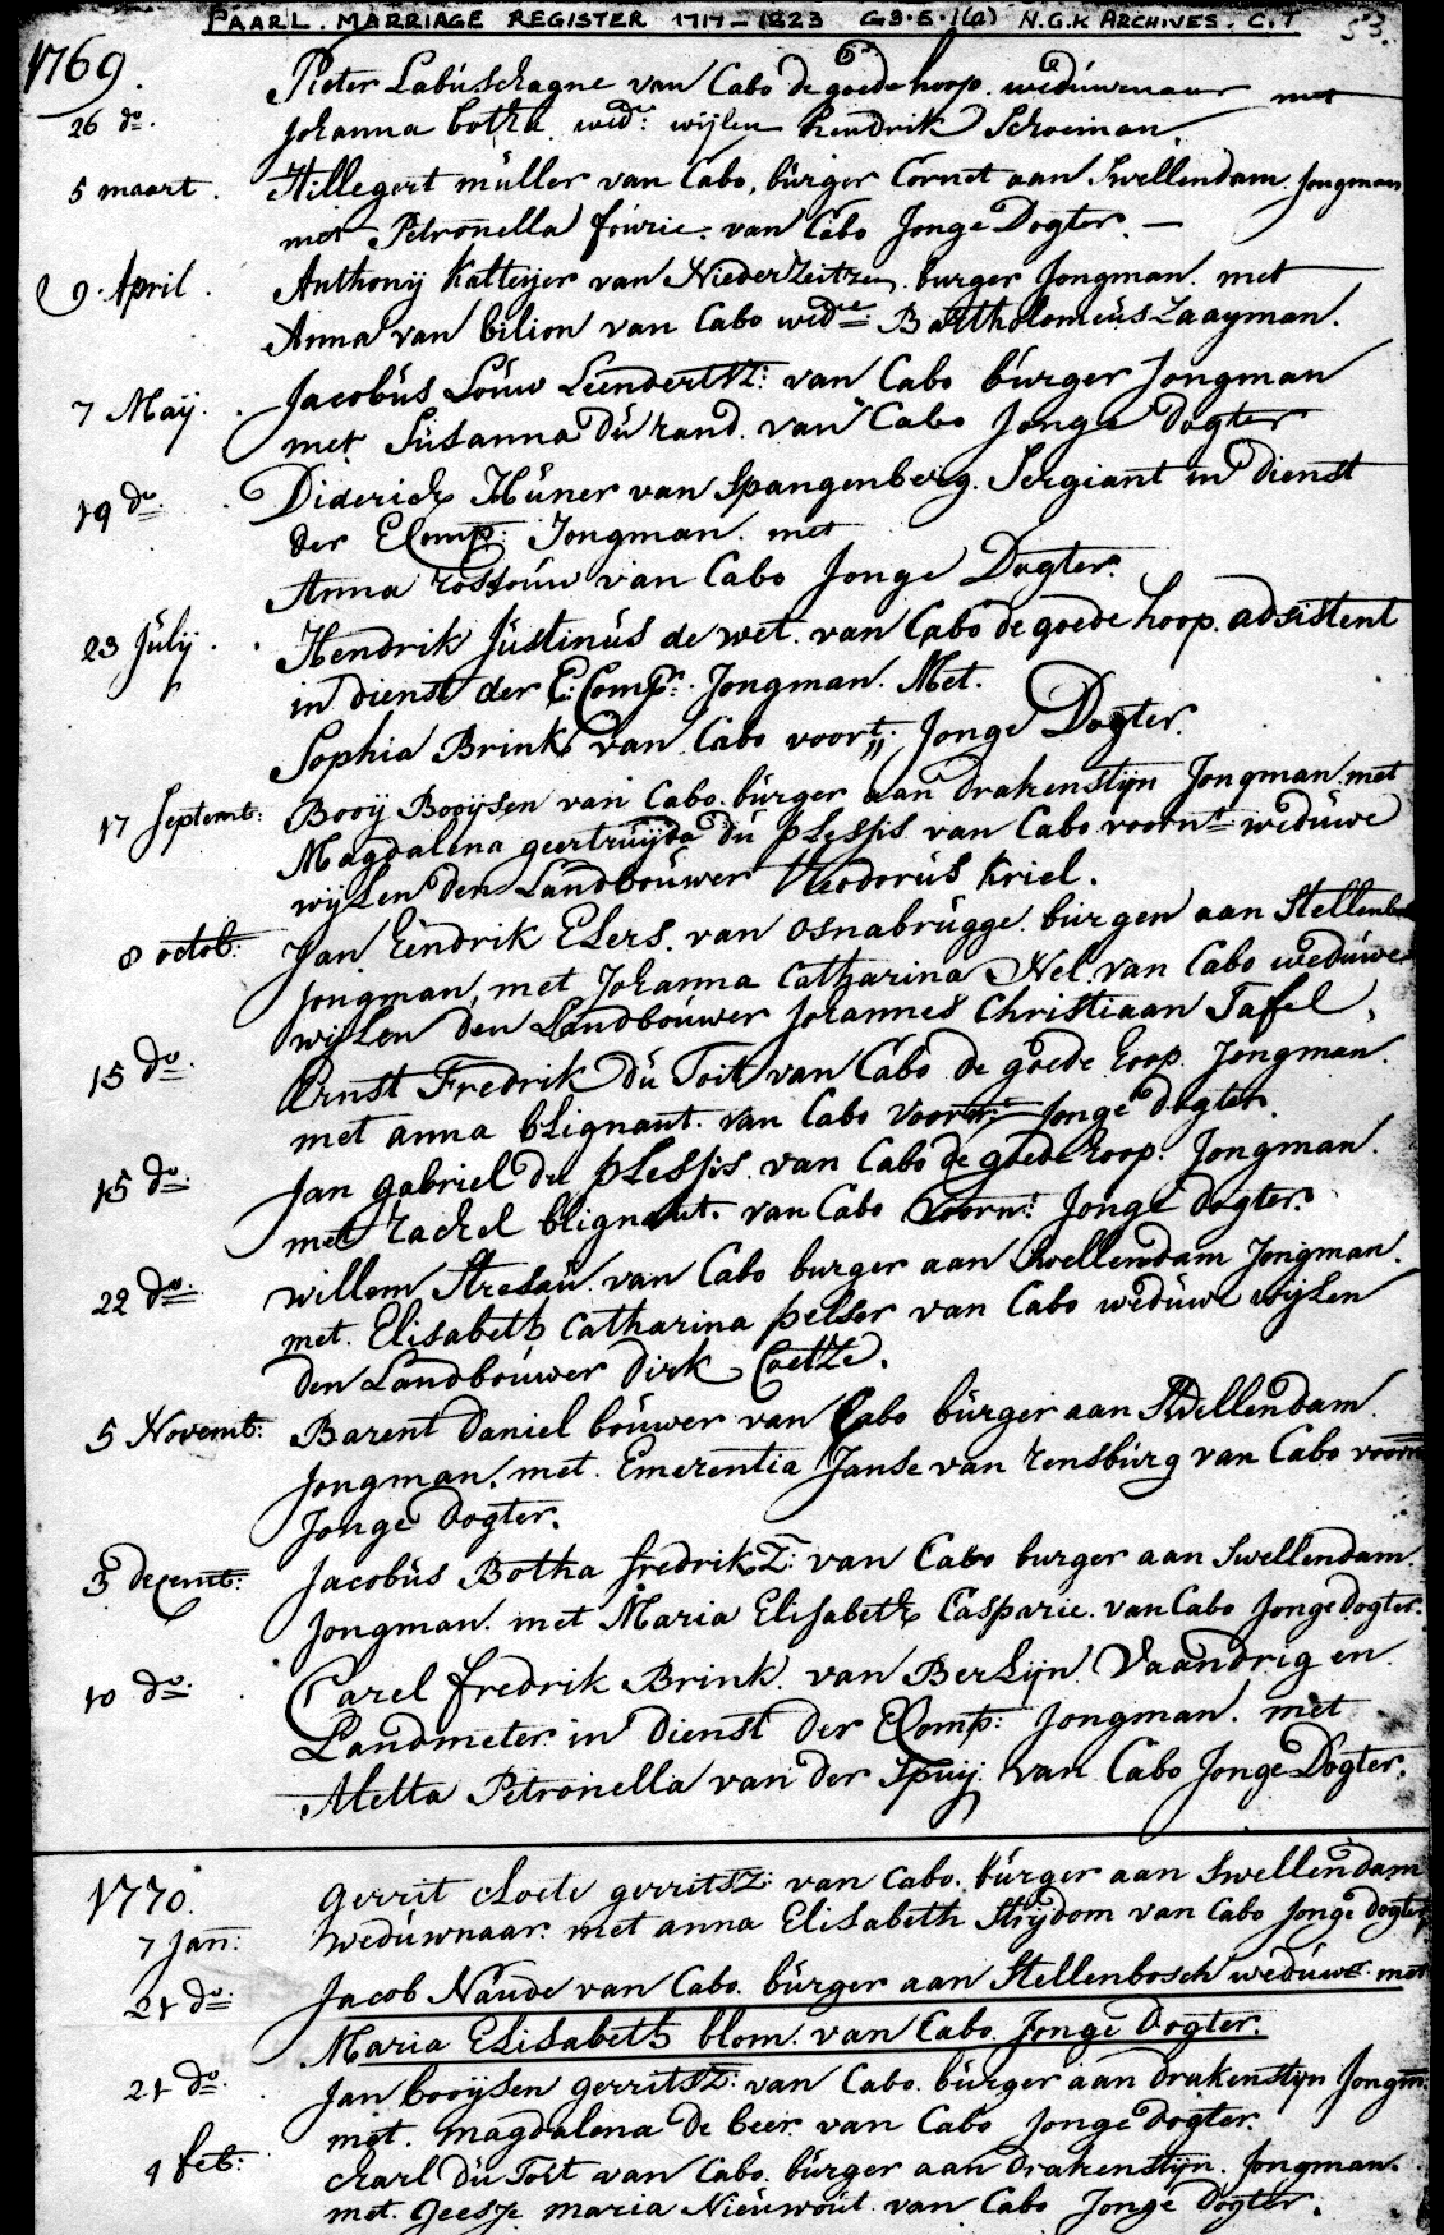 PAARL. MARRIAGE REGISTER 1717-1823 G3.5.1(a) N.G.K ARCHIVES. C.T 53.
1769.
Pieter Labuschagne van Cabo de goede hoop. weduwenaar met
26 do. Johanna botha wede: wijlen Hendrik Schoeman.
5 maart. Hillegert muller van Cabo, burger Cornet aan Swellendam. Jongman
met Petronella fourie. van Cabo Jonge Dogter. —
9. April. Anthonij Katteyer van Niederzeitzen. burger Jongman. met
Anna van bilion van Cabo wede Bartholomeus Zaayman.
7 Maij. Jacobus Louw Leendertsz: van Cabo burger Jongman
met Susanna du rand. van Cabo Jonge dogter
19 do. Diderich Hüner van Spangenberg. Sergiant in dienst
der EComp: Jongman. met
Anna rossouw van Cabo Jonge Dogter.
23 Julij. Hendrik Justinus de wet. van Cabo de goede hoop. adsistent
in dienst der E: Compe: Jongman. Met.
Sophia Brink van Cabo voort: Jonge Dogter.
17 Septemb: Booij Booijsen van Cabo. burger aan drakenstijn Jongman. met
Magdalena geertruijda du plessis van Cabo voornt weduwe
wijlen den Landbouwer Theodorus Kriel.
8 octob: Jan Hendrik Elers. van Osnabrugge. burger aan Stellenb
jongman, met Johanna Catharina Nel. van Cabo weduwe
wijlen den Landbouwer Johannes Christiaan Tafel.
15 do. Ernst Fredrik du Toit van Cabo de goede hoop Jongman.
met anna blignaut. van Cabo voornt. Jonge dogter.
15 do. Jan gabriel du plessis van Cabo de goede hoop. Jongman.
met rachel blignaut. van Cabo voornt: Jonge dogter.
22 do. willem Stresau. van Cabo burger aan Swellendam Jongman.
met. Elisabeth Catharina pelser van Cabo weduwe wijlen
den Landbouwer dirk Coetze.
5 Novemb: Barent daniel bouwer van Cabo burger aan Swellendam.
Jongman. met. Emerentia Janse van rensburg van Cabo voorn
Jonge dogter.
3 decemb: Jacobus Botha fredriksz: van Cabo burger aan Swellendam.
Jongman. met Maria Elisabeth Casparie. van Cabo Jonge dogter.
10 do. Carel fredrik Brink. van Berlijn. Vaandrig en
Landmeter in dienst der EComp: Jongman. met
Aletta Petronella van der Spuij. van Cabo Jonge Dogter.
1770. gerrit cloete gerritsz: van Cabo. burger aan Swellendam
7 Jan: weduwnaar. met anna Elisabeth Strijdom van Cabo Jonge dogter
21 do: Jacob Naude van Cabo. burger aan Stellenbosch weduwr. met
Maria Elisabeth blom. van Cabo Jonge dogter.
21 do. Jan booijsen gerritsz: van Cabo. burger aan drakenstijn Jongm:
met. magdalena de beer. van Cabo Jonge dogter.
4 feb: charl du Toit van Cabo. burger aan drakenstijn. Jongman.
met. geesje maria Nieuwout. van Cabo Jonge dogter.